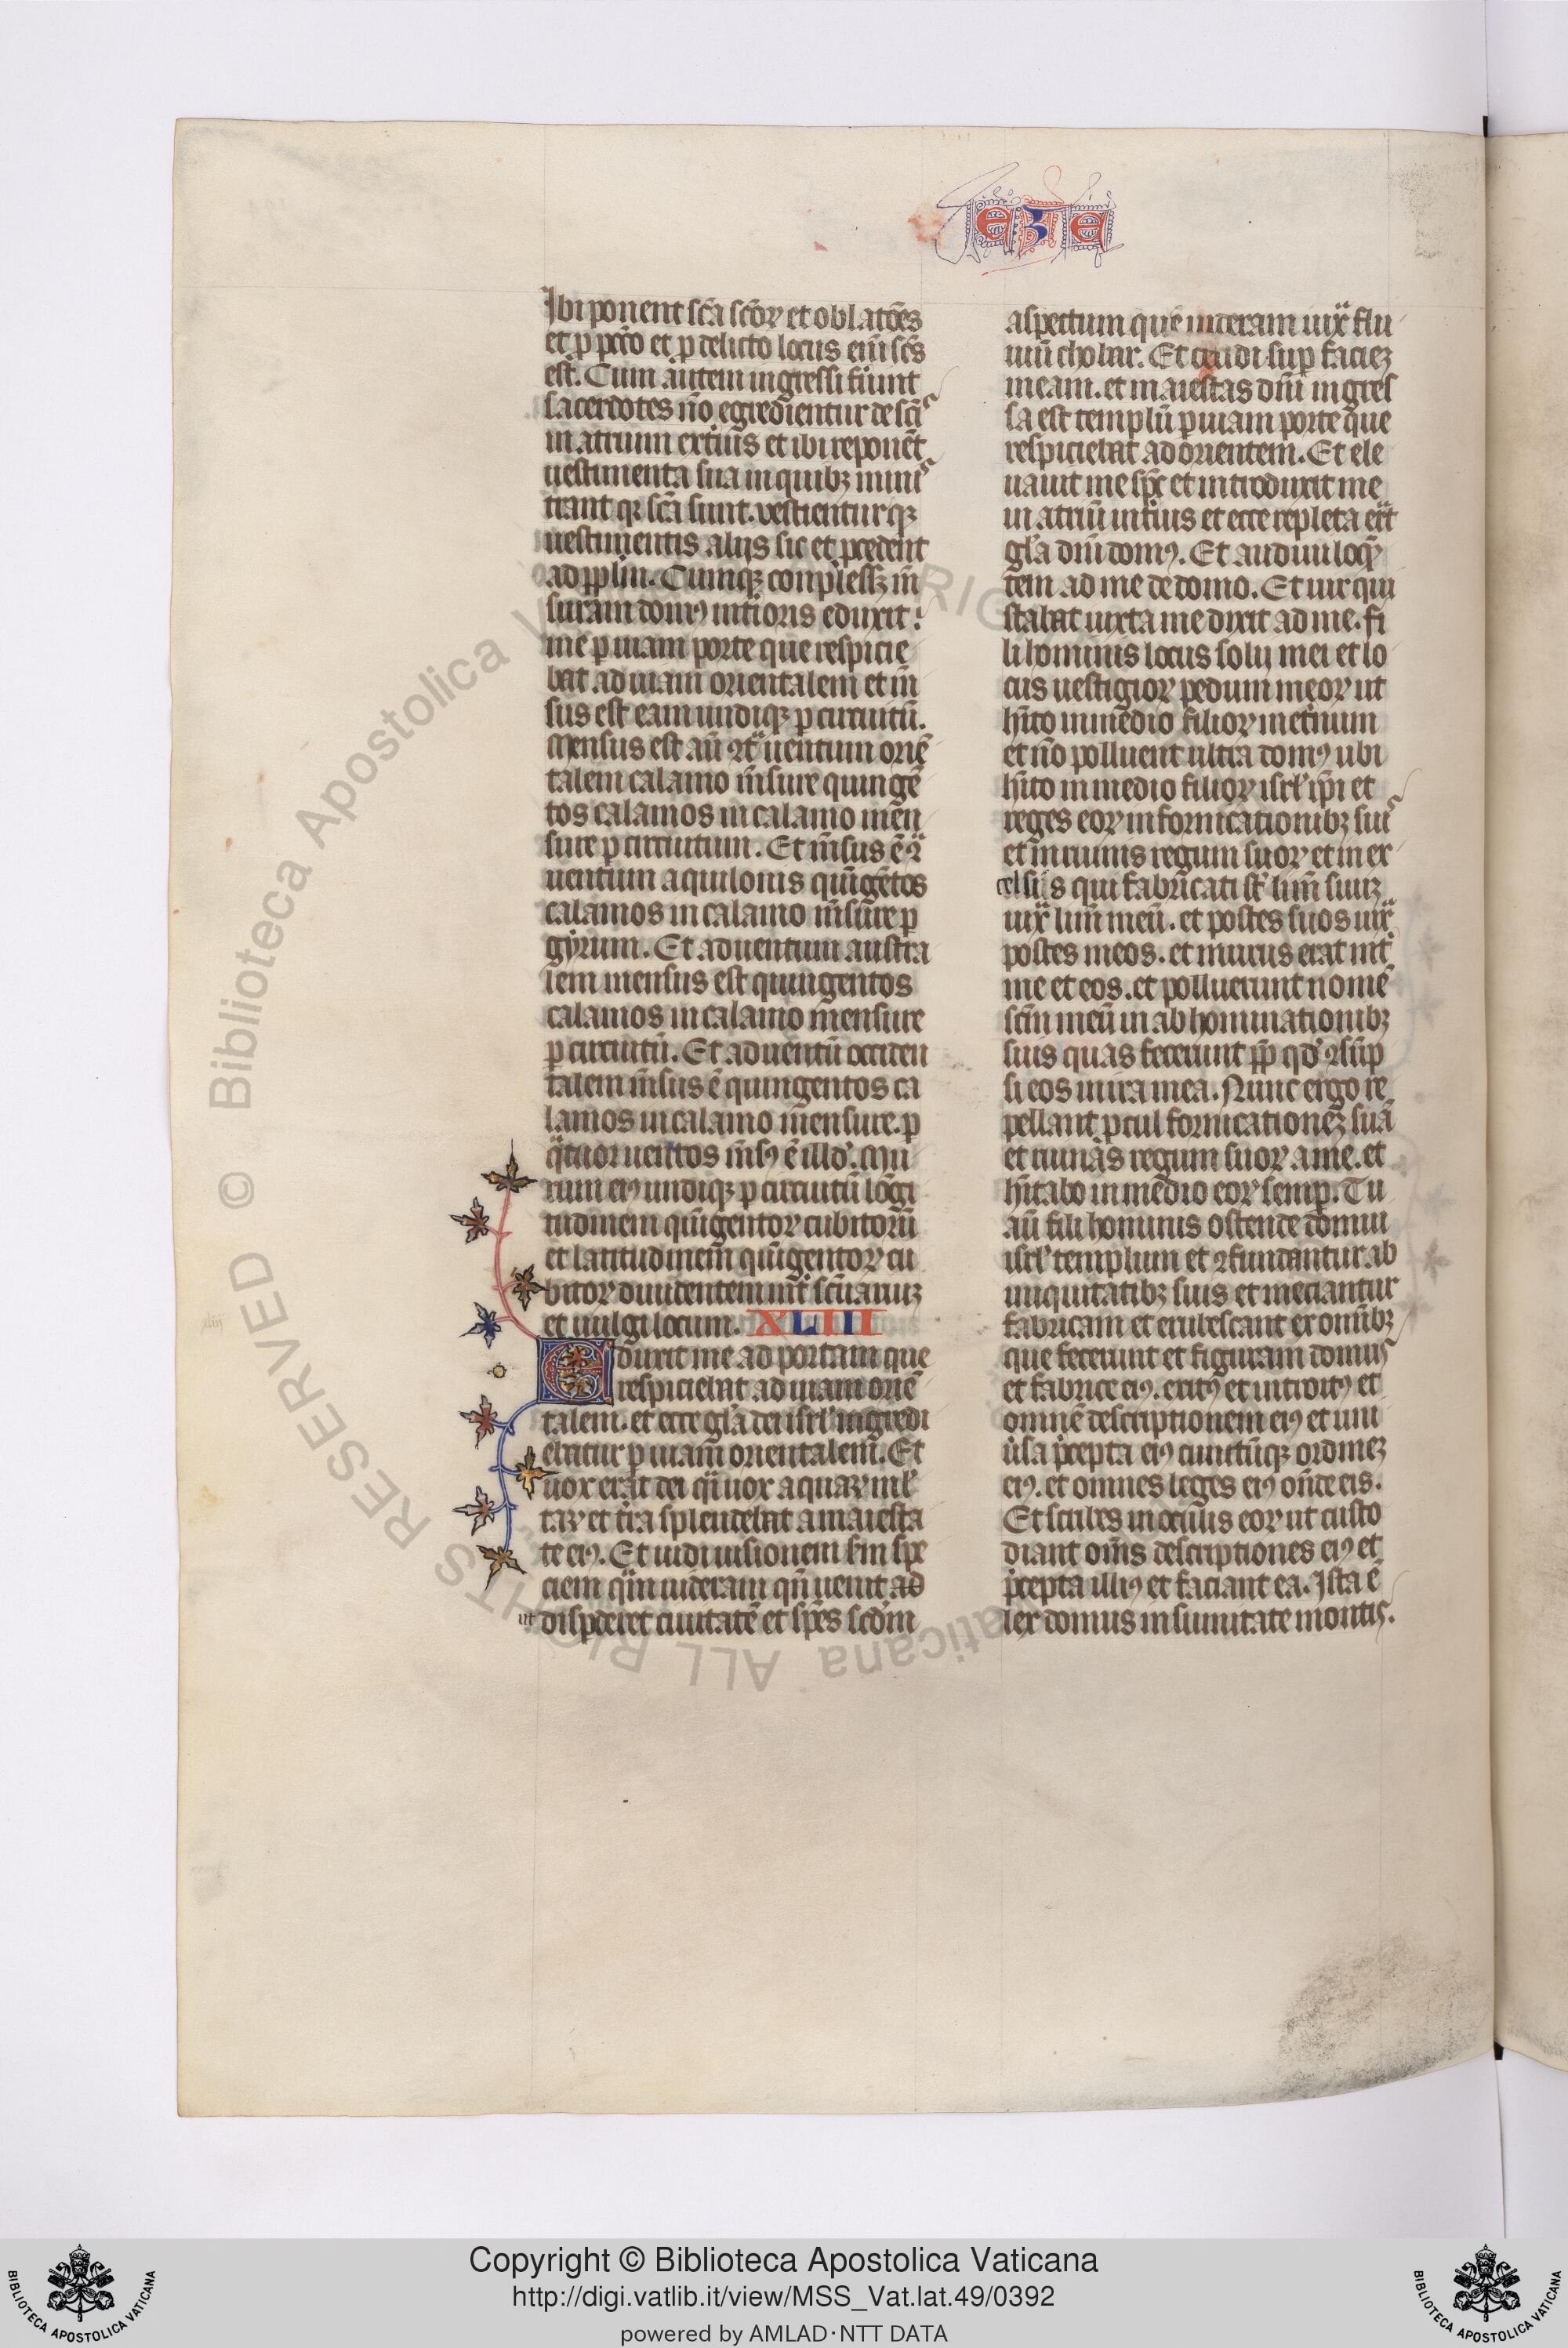 EZE
Ibi ponent sc̄a sc̄oꝝ et oblatōes
et ꝓ pcc̄o et ꝓ delicto locus eni᷑ sc̄s
est. Cum autem ingressi fuint
sacerdotes nō egredientur de sc̄is
in atrium exteri᷑us et ibi reponēt
uestimenta sua in quibꝫ minis
trant qꝛ sc̄a sunt. vestienturqꝫ
uestimentis alijs sic et ꝓcedent
ad pplm̄. Cumqꝫ conplessꝫ m̄
suram domꝰ int̄ioris eduxit
me ꝑ uiam porte que respicie
bat ad uiam orientalem et m̄
sus est eam undiqꝫ ꝑ circuitū.
Mensus est aū ꝯtͣ uentum oriē
talem calamo m̄sure quingē
tos calamos in calamo men
sure ꝑ circuitum. Et m̄sus ē ꝯͣ
uentum aquilonis quīgētos
calamos in calamo m̄sure ꝑ
gyrum. Et ad uentum austra
lem mensus est quingentos
calamos in calamo mensure
ꝑ circuitū. Et ad uentū occiden
talem m̄sus ē quingentos ca
lamos in calamo mensure. ꝑ
qͣtuor uentos m̄sꝰ ē illd᷑. Mu
rum eiꝰ undiqꝫ ꝑ circuitū lōgi
tudinem quīgentoꝝ cubitorū
et latitudinem quīgentoꝝ cu
bitoꝝ diuidentem int̄ sc̄uariuꝫ
et uulgi locum. XLIII
Eduxit me ad portam que
respiciebat ad uiam oriē
talem. et ecce gl̄a dei isrl̄ ingredi
ebatur ꝑ uiam orientalem. Et
uox erat dei qͣi uox aquaꝝ ml̄
taꝝ et t̄ra splendebat a maiesta
te eiꝰ. Et uidi uisionem sm̄ spe
ciem qͣm uideram qn̄ uenit ad
ut disꝑderet ciuitatē et spēs scd̄m
aspectum quē uideram iuxͣ flu
uiū chobar. Et cecidi suꝑ facieꝫ
meam. et maiestas dn̄i ingres
sa est templū ꝑ uiam porte que
respiciebat ad orientem. Et ele
uauit me spc̄ et introduxit me
in atriū int̄ius et ecce repleta erͣt
gl̄a dn̄i domꝰ. Et audiui loqn̄
tem ad me de domo. Et uir qui
stabat iuxta me dixit ad me. fi
li hominis locus solij mei et lo
cus uestigioꝝ pedum meoꝝ ut
hīto in medio filioꝝ metuum
et nō polluent ultra domꝰ ubi
hīto in medio filioꝝ isrl̄ ip̄i et
reges eoꝝ in fornicationibꝫ suis
et in ruinis regum suoꝝ et in ex
celsis qui fabricati st̄ lim̄ suuꝫ
iuxͣ lim̄ meū. et postes suos iuxͣ
postes meos. et murus erat int̄
me et eos. et polluerunt nomē
scm̄ meū in abhominationibꝫ
suis quas fecerunt ꝓp qd̄ ꝯsūp
si eos in ira mea. Nunc ergo re
pellant ꝓcul fornicationeꝫ suā
et ruinas regum suoꝝ a me. et
hītabo in medio eoꝝ semꝑ. Tu
aū fili hominis ostende domui
isrl̄ templum et ꝯfundantur ab
iniquitatibꝫ suis et meciantur
fabricam et erubescant ex om̄ibꝫ
que fecerunt et figuram domus
et fabrice eiꝰ. exitꝰ et introitꝰ et
omnē descriptionem eiꝰ et uni
ūsa p̄cepta eiꝰ cunctūqꝫ ordineꝫ
eiꝰ. et omnes leges eiꝰ on̄de eis.
Et scribes in oculis eoꝝ ut custo
diant om̄s descriptiones eiꝰ et
p̄cepta illiꝰ et faciant ea. Ista ē
lex domus in sumitate montis.
© Biblioteca Apostolica Vaticana ALL RIGHTS RESERVED
Copyright © Biblioteca Apostolica Vaticana
http://digi.vatlib.it/view/MSS_Vat.lat.49/0392
powered by AMLAD·NTT DATA
BIBLIOTECA APOSTOLICA VATICANA
BIBLIOTECA APOSTOLICA VATICANA